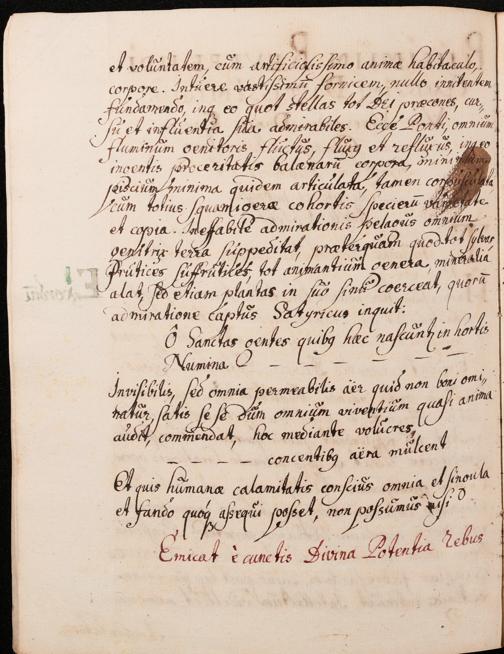 et voluntatem, cum artificiosissimo animæ habitaculo,
corpore. Intuere vastissimū fornicem, nullo innitentem
fundamendo, inq eo quot stellas tot DEI præcones, cur,
sū et influentia sua admirabiles. Ecce Ponti, omnium
fluminum genitoris, fluctus, fluxq et refluxus, inq eo
ingentis proceritatis balænarū corpora, minimum
piscium minima quidem articulata, tamen
cum totius squamigeræ cohortis specierū varietate
et copia. Ineffabile admirationis pelagus omnium
genitrix terra suppeditat, præterquam quod tot sylvas
frutices sufrutices, tot animantium genera, mineralia
alat, sed etiam plantas in suo sinu coerceat, quorū
admiratione captus Satyricus inquit:
Ô Sanctas gentes quibq hæc nascuntr in hortis
Numina
Invisibilis, sed omnia permeabilis aër quid non boni omi,,
natur, satis se se dum omnium viventium quasi anima
audit, commendat, hoc mediante volucres
concentibq aëra mulcent
Et quis humanæ calamitatis conscius omnia et singula
et fando quoq assequi posset, non possumus nisi
Emicat è cunctis Divina Potentia rebus